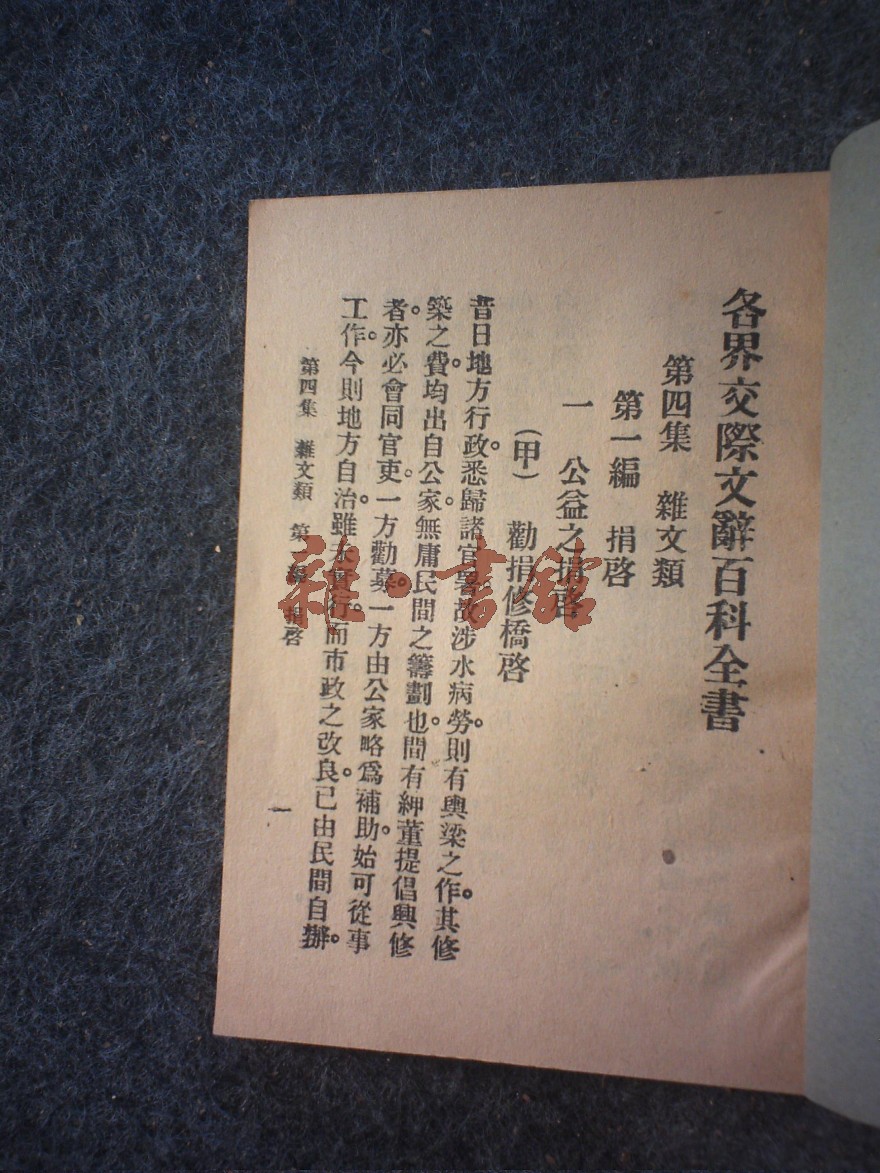 各界交際文辭百科全書
第四集 雜文類
第一編 捐啓
一 公益之捐啓
(甲) 勸捐修橋啓
昔日地方行政。悉歸諸官署。故涉水病勞。則有輿梁之作。其修
築之費。均出自公家。無庸民間之籌劃也。間有紳董提倡興修
者。亦必會同官吏。一方勸募。一方由公家略爲補助。始可從事
工作。今則地方自治。雖未實行。而市政之改良。已由民間自辦。
第四集 雜文類 第 編 捐啓
一
雜·書館